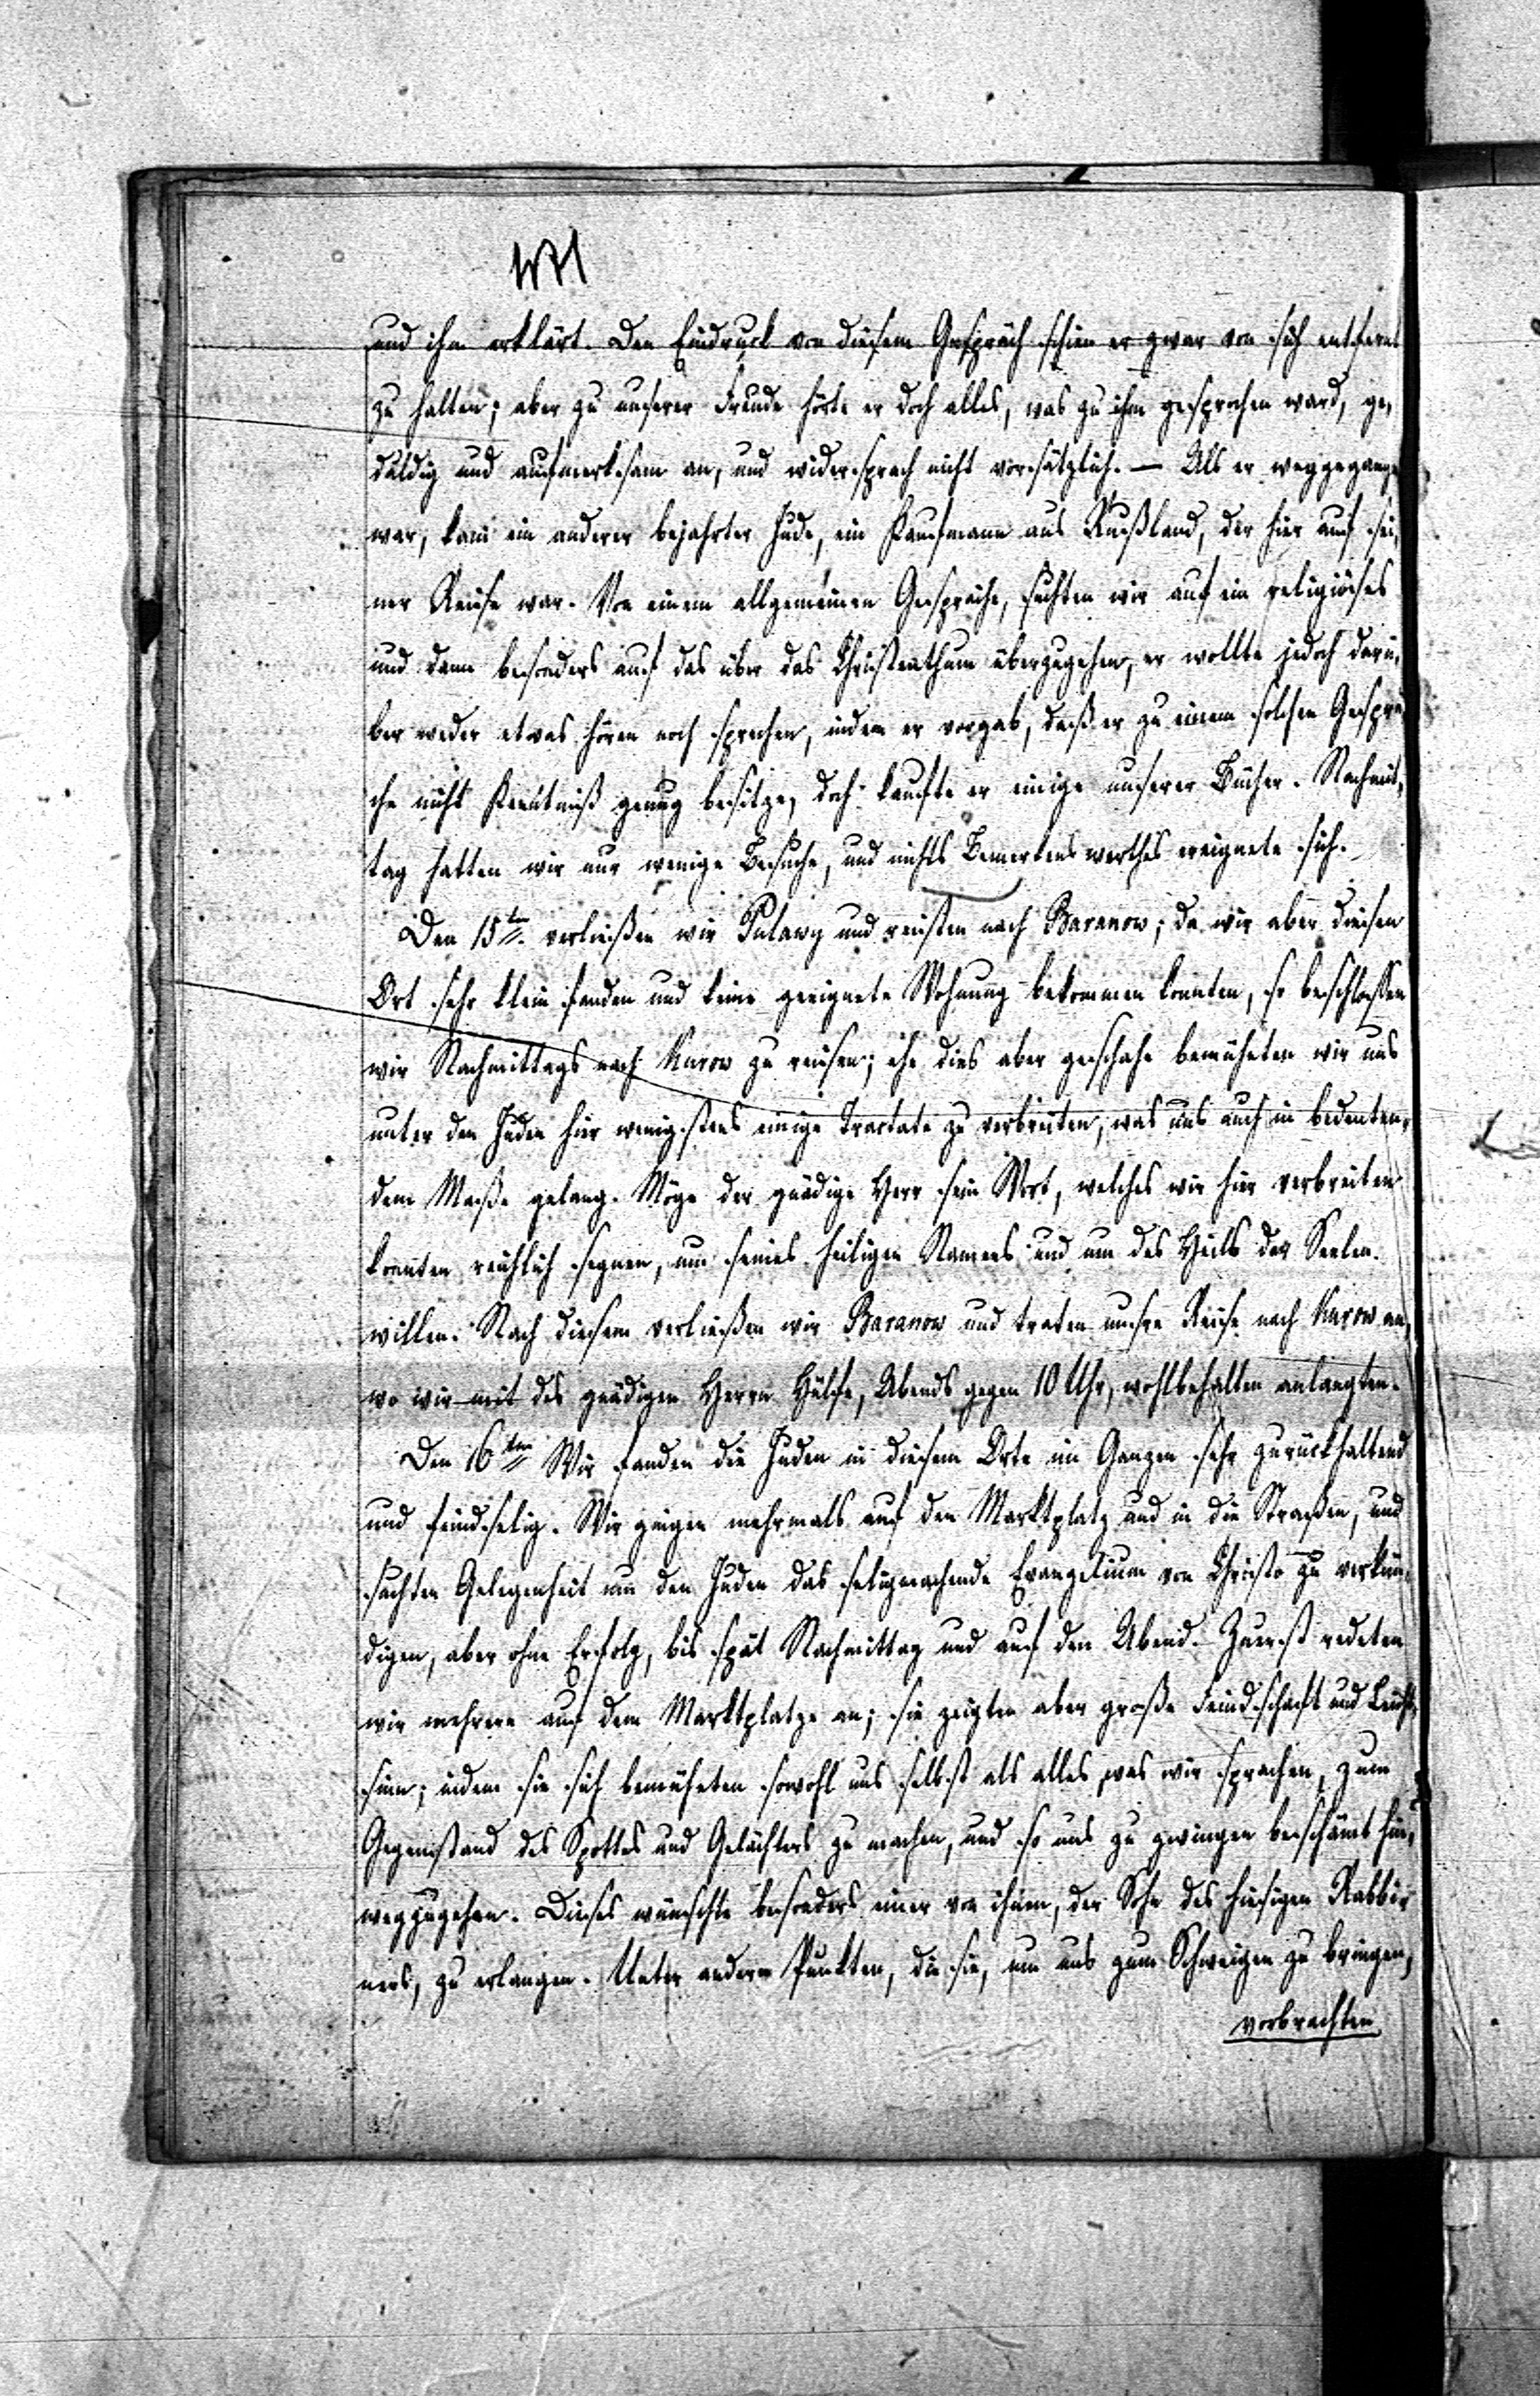 und ihm erklärt. Den Eindruck von diesem Gespräch schien er zwar von sich entfernt
zu halten; aber zu unserer Freude hörte er doch alles, was zu ihm gesprochen ward, ge,
duldig und aufmerksam an, und widersprach nicht vorsätzlich. — Als er weggegangen
war, kam ein anderer bejahrter Jude, ein Kaufmann aus Rußland, der hier auf sei,
ner Reise war. Von einem allgemeinen Gespräche, suchten wir auf ein religiöses
und dann besonders auf das über das Christenthum überzugehen, er wollte jedoch darü,
ber weder etwas hören noch sprechen, indem er vorgab, daß er zu einem solchen Gesprä,
che nicht Kenntniß genug besitze, doch kaufte er einige unserer Bücher. Nachmit,
tag hatten wir nur wenige Besuche, und nichts Bemerkenswerthes ereignete sich.
Den 15ten verließen wir Pulawy und reisten nach Baranow; da wir aber diesen
Ort sehr klein fanden und keine geeignete Wohnung bekommen konnten, so beschlossen
wir Nachmittags nach Kurow zu reisen; ehe dies aber geschahe bemüheten wir uns
unter den Juden hier wenigstens einige Tractate zu verbreiten, was uns auch in bedeuten,
dem Maße gelang. Möge der gnädige Herr sein Wort, welches wir hier verbreiten
konnten reichlich segnen, um seines heiligen Namens und um des Heils der Seelen
willen. Nach diesem verließen wir Baranow und traten unsre Reise nach Kurow an,
wo wir mit des gnädigen Herrn Hülfe, Abends gegen 10 Uhr, wohlbehalten anlangten.
Den 16ten Wir fanden die Juden in diesem Orte im Ganzen sehr zurückhaltend
und feindselig. Wir gingen mehrmals auf den Marktplatz und in die Straßen, und
suchten Gelegenheit um den Juden das seligmachende Evangelium von Christo zu verkün,
digen, aber ohne Erfolg, bis spät Nachmittag und auf den Abend. Zuerst redeten
wir mehrere auf dem Marktplatze an; sie zeigten aber große Feindschaft und Leicht,
sinn; indem sie sich bemüheten sowohl uns selbst als alles, was wir sprachen, zum
Gegenstand des Spottes und Gelächters zu machen, und so uns zu zwingen beschämt hin,
wegzugehen. Dieses wünschte besonders einer von ihnen, der Sohn des hiesigen Rabbi,
ners, zu erlangen. Unter andern Punkten, die sie, um uns zum Schweigen zu bringen,
vorbrachten